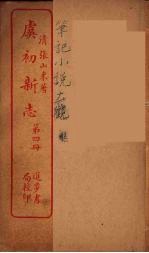 清張山來著
虞初新志
第四册
進步書
局校印
筆記小說大觀